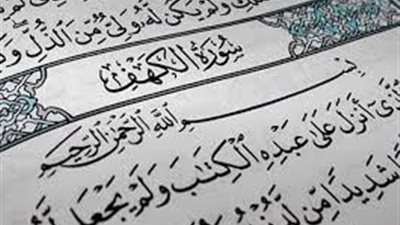 وَلَمْ يَكُن لَّهُۥ وَلِىٌّ مِّنَ ٱلذُّلِّ وَ
سُورَةُ الكَهْفِ
بِسْمِ اللَّهِ الرَّحْمَٰنِ الرَّحِيمِ
أَنزَلَ عَلَىٰ عَبْدِهِ ٱلْكِتَٰبَ وَلَمْ يَجْعَل
شَدِيدًا مِّن